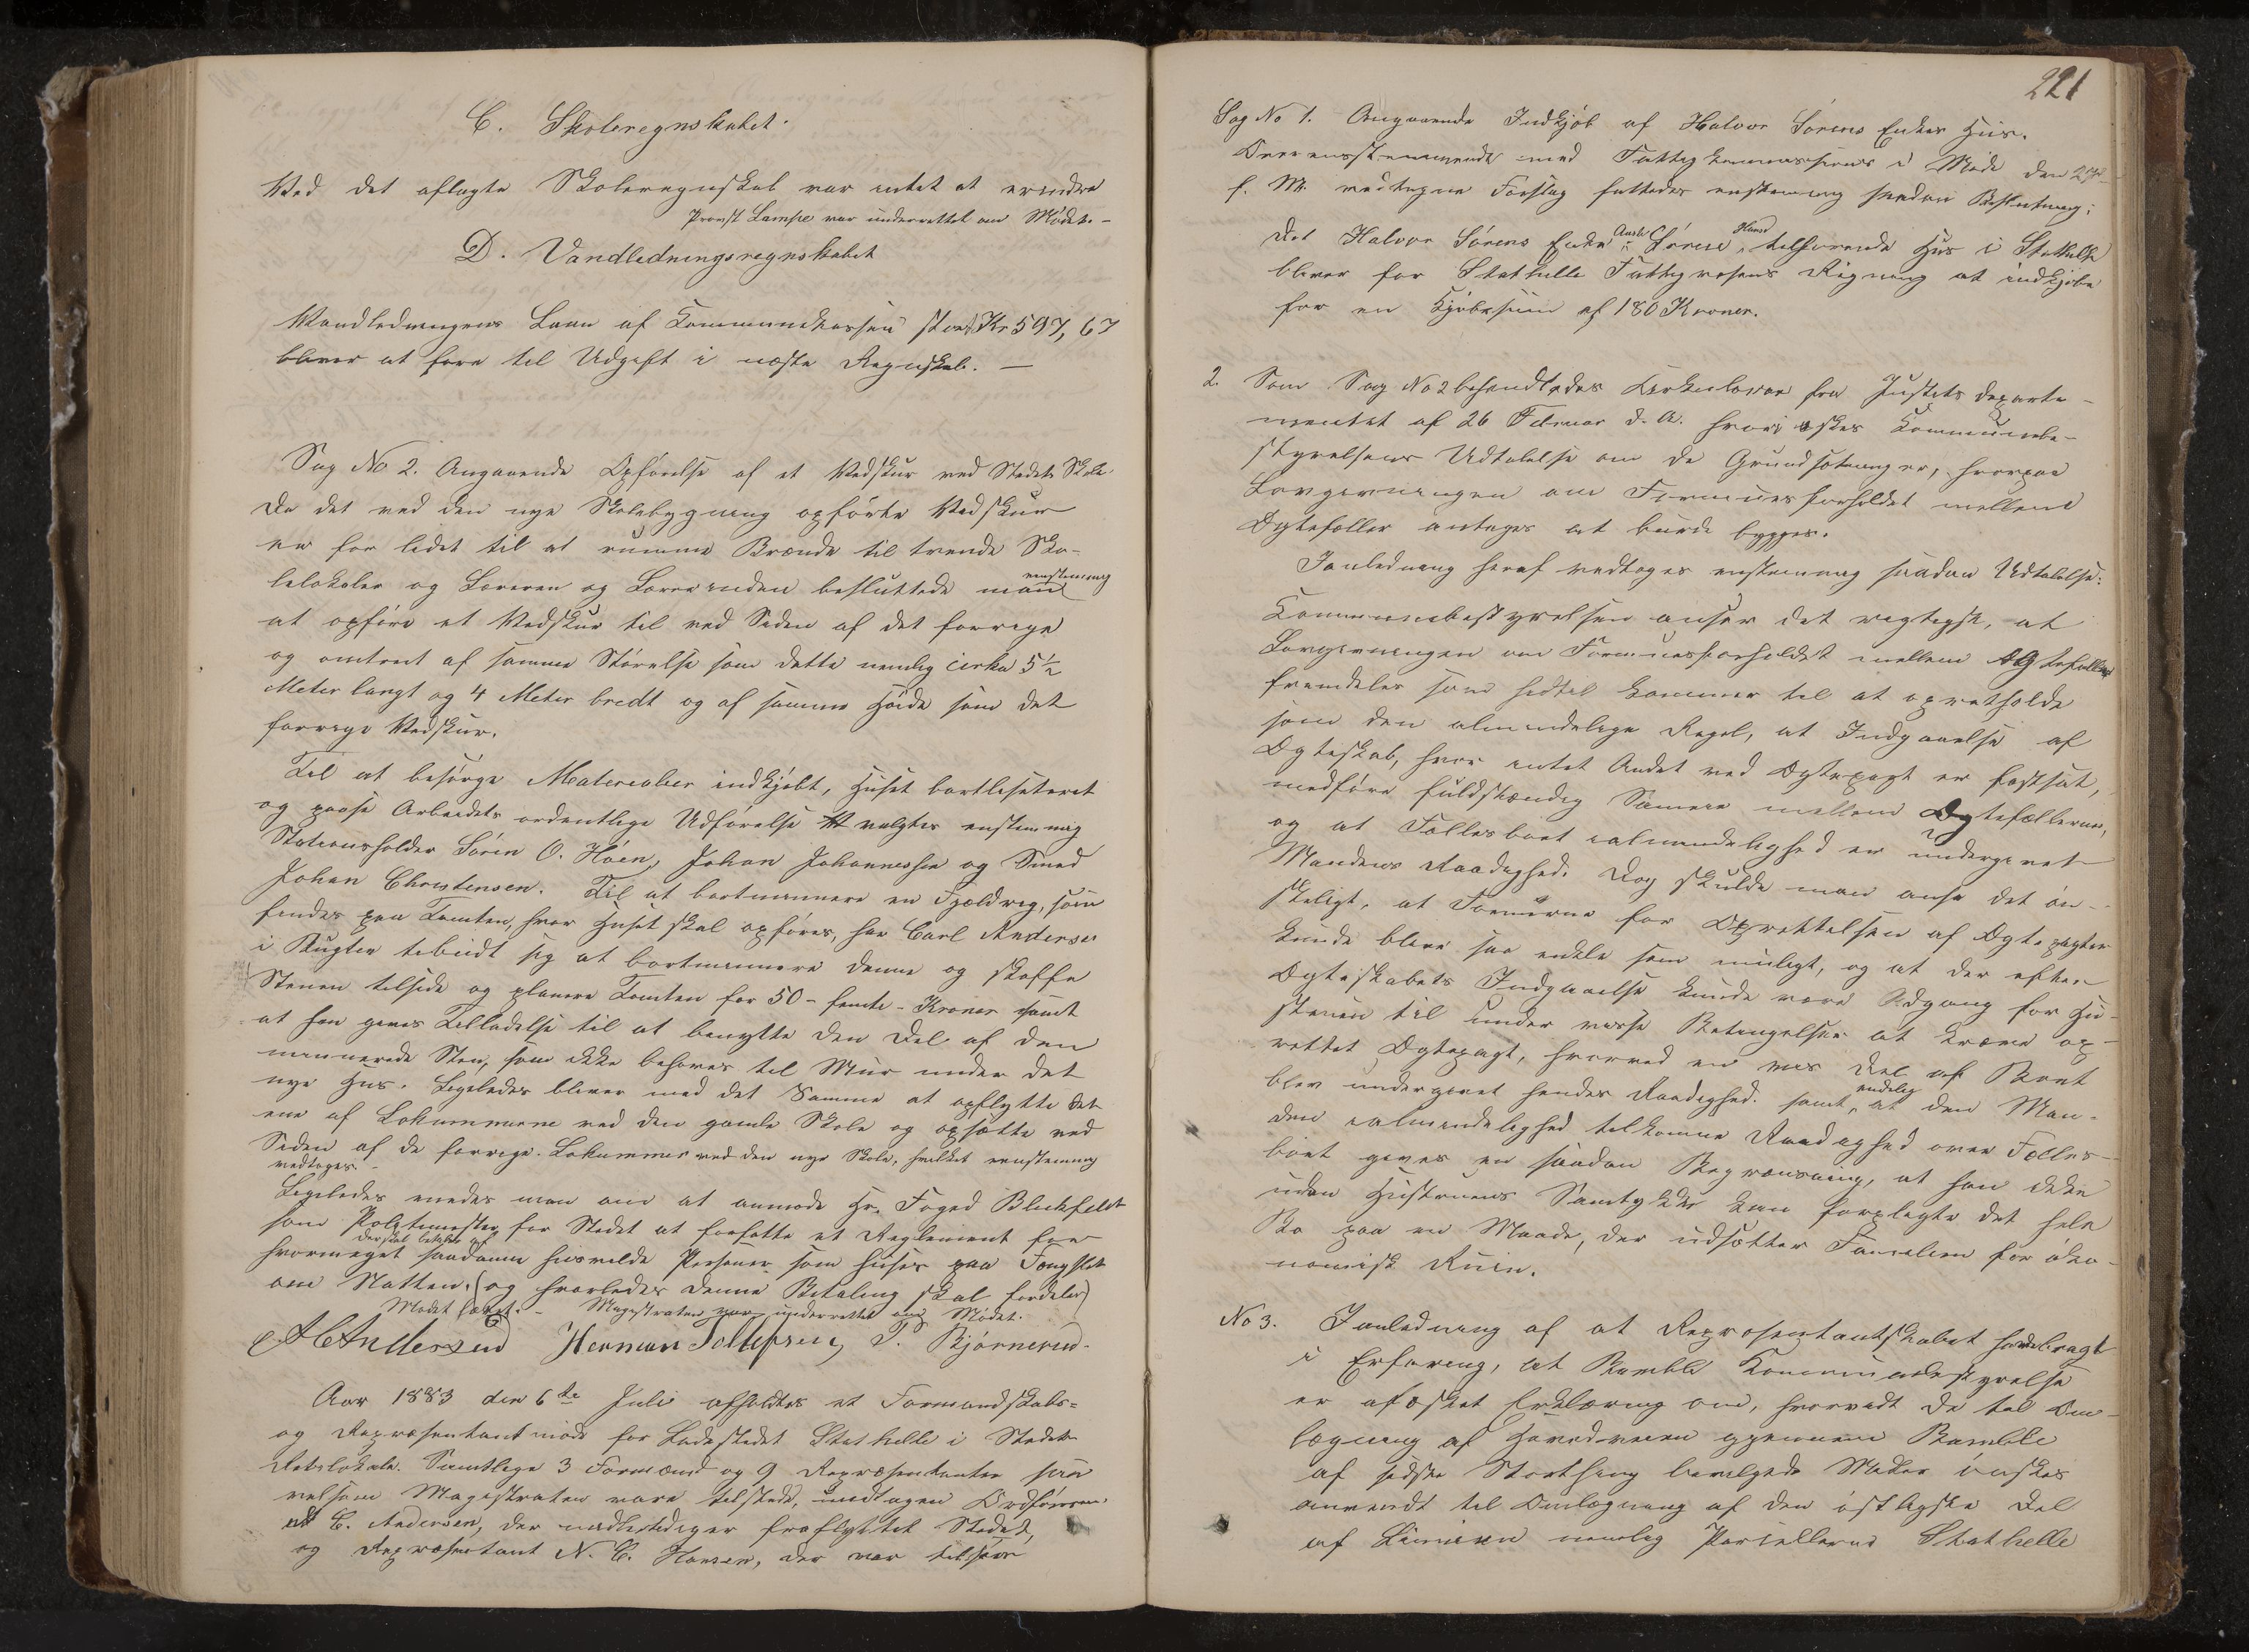 C. Skoleregnskabet.
Ved det aflagte Skoleregnskab var intet at erindre
Provst Lampe var underrettet om Mødet. –
D. Vandledningsregnskabet
Vandledningens Laan af Kommunekassen stort Kr 597,67
bliver at føre til Udgift i næste Regnskab. –
Sag No 2. Angaaende Opførelse af et Vedskur ved Stedets Skole.
Da det ved den nye Skolebygning opførte Vedskur
er for lidet til at rumme Brænde til trende Sko-
lelokaler og Læreren og Lærerinden besluttede man enstemmig
at opføre et Vedskur til ved Siden af det forrige
og omtrent af samme Størrelse som dette nemlig cirka 5½
Meter langt og 4 Meter bredt og af samme Høide som det
forrige Vedskur.
Til at besørge Materialier indkjøbt, Huset bortliciteret
og paase Arbeidets ordentlige Udførelse valgtes enstemmig
Stationsholder Søren O. Høen, Johan Johannessen og Smed
Johan Christensen. Til at bortminere en Fjeldryg, som
findes paa Tomten, hvor Huset skal opføres, har Carl Andersen
i Bugten tilbudt sig at bortminere denne og skaffe
Stenen tilside og planere Tomten for 50 – femti – Kroner samt
at han gives Tilladelse til at benytte den Del af den
minerede Sten, som ikke behøves til Mur under det
nye Hus. Ligeledes bliver med det Samme at opflytte det
ene af Lokummerne ved den gamle Skole og opsætte ved
Siden af de forrige Lokummer ved den nye Skole, hvilket enstemmig
vedtoges. –
Ligeledes enedes man om at anmode Hr. Foged Blechfeldt
som Politimester for Stedet at forfatte et Reglement for
hvormeget der skal betales af saadanne husvilde Personer som huses paa Fængslet
om Natten. (og hvorledes denne Betaling skal fordeles)
Mødet hævet. – Magistraten var underrettet om Mødet.
A C Andersen Herman Tollefsen P. Bjørnerud.
Aar 1883 den 6te Juli afholdtes et Formandskabs-
og Repræsentantmøde for Ladestedet Stathelle i Stedets
Retslokale. Samtlige 3 Formænd og 9 Repræsentanter saa
velsom Magistraten vare tilstede, undtagen Ordføreren
A C. Andersen, der midlertidigen fraflyttet Stedet,
og Repræsentant N. C. Hansen, der var tilsøes
221
Sag No 1. Angaaende Indkjøb af Halvor Sørens Enkes Hus.
Overensstemmende med Fattigkommissionens i Møde den 27de
f. M. vedtagne Forslag fattedes enstemmig saadan Beslutning:
Det Halvor Sørens Enke tilhørende Hus i Stathelle
bliver for Stathelle Fattigvæsens Regning at indkjøbe
for en Kjøbesum af 180 Kroner.
2. Som Sag No 2 behandledes Cirkulære fra Justits departe-
mentet af 26 Februar d. A. hvori æskes Kommunebe-
styrelsens Udtalelse om de Grundsætninger, hvorpaa
Lovgivningen om Formuesforholdet mellem
Ægtefæller antages at burde bygges.
I anledning heraf vedtoges enstemmig saadan Udtalelse:
Kommunebestyrelsen anser det rigtigst, at
Lovgivningen om Formuesforholdet mellem Ægtefæller
fremdeles som hidtil kommer til at opretholde
som den almindelige Regel, at Indgaaelse af
Ægteskab, hvor intet Andet ved Ægtepagt er fastsat,
medføre fuldstændig Sameie mellem Ægtefællerne,
og at Fællesboet i almindelighed er undergivet
Mandens Raadighed. Dog skulde man anse det øn-
skeligt, at Formerne for Oprettelsen af Ægtepagter
kunde blive saa enkle som muligt, og at der efter
Ægteskabets Indgaaelse kunde være Adgang for Hu-
struen til under visse Betingelser at kræve op-
rettet Ægtepagt, hvorved en vis Del af Boet
blev undergivet hendes Raadighed. samt endelig, at den Man-
den i almindelighed tilkomne Raadighed over Fælles-
boet gives en saadan Begrænsning, at han ikke
uden Hustruens Samtykke kan forpligte det hele
Bo paa en Maade, der udsætter Familien for øko-
nomisk Ruin.
No 3. I anledning af at Repræsentantskabet har bragt
i Erfaring, at Bamble Kommunebestyrelse
er afæsket Erklæring om, hvorvidt de til Om-
lægning af Hovedveien gjennem Bamble
af sidste Storthing bevilgede Midler ønskes
anvendt til Omlægning af den østligste Del
af Linien nemlig Parcellerne Stathelle